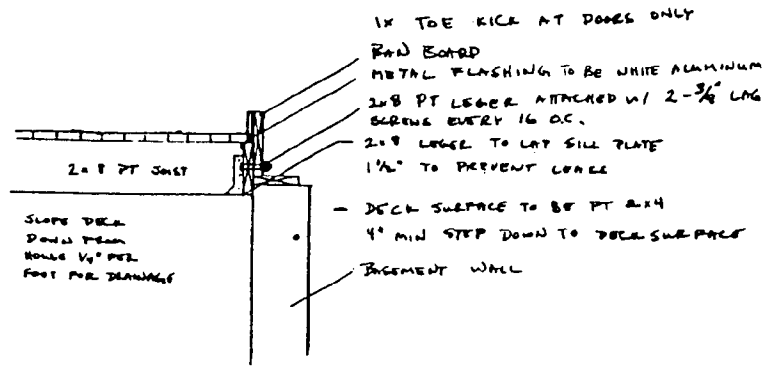 1X TOE KICK AT DOORS ONLY
BAN BOARD
METAL FLASHING TO BE WHITE ALUMINUM
2x8 PT LEGER ATTACHED W/ 2-3/8" LAG
SCREWS EVERY 16 O.C.
2x8 LEGER TO LAP SILL PLATE
1 1/2" TO PREVENT LEAKS
2x8 PT JOIST
- DECK SURFACE TO BE PT 2x4
4" MIN STEP DOWN TO DECK SURFACE
SLOPE DECK
DOWN FROM
HOUSE 1/4" PER
FOOT FOR DRAINAGE
BASEMENT WALL